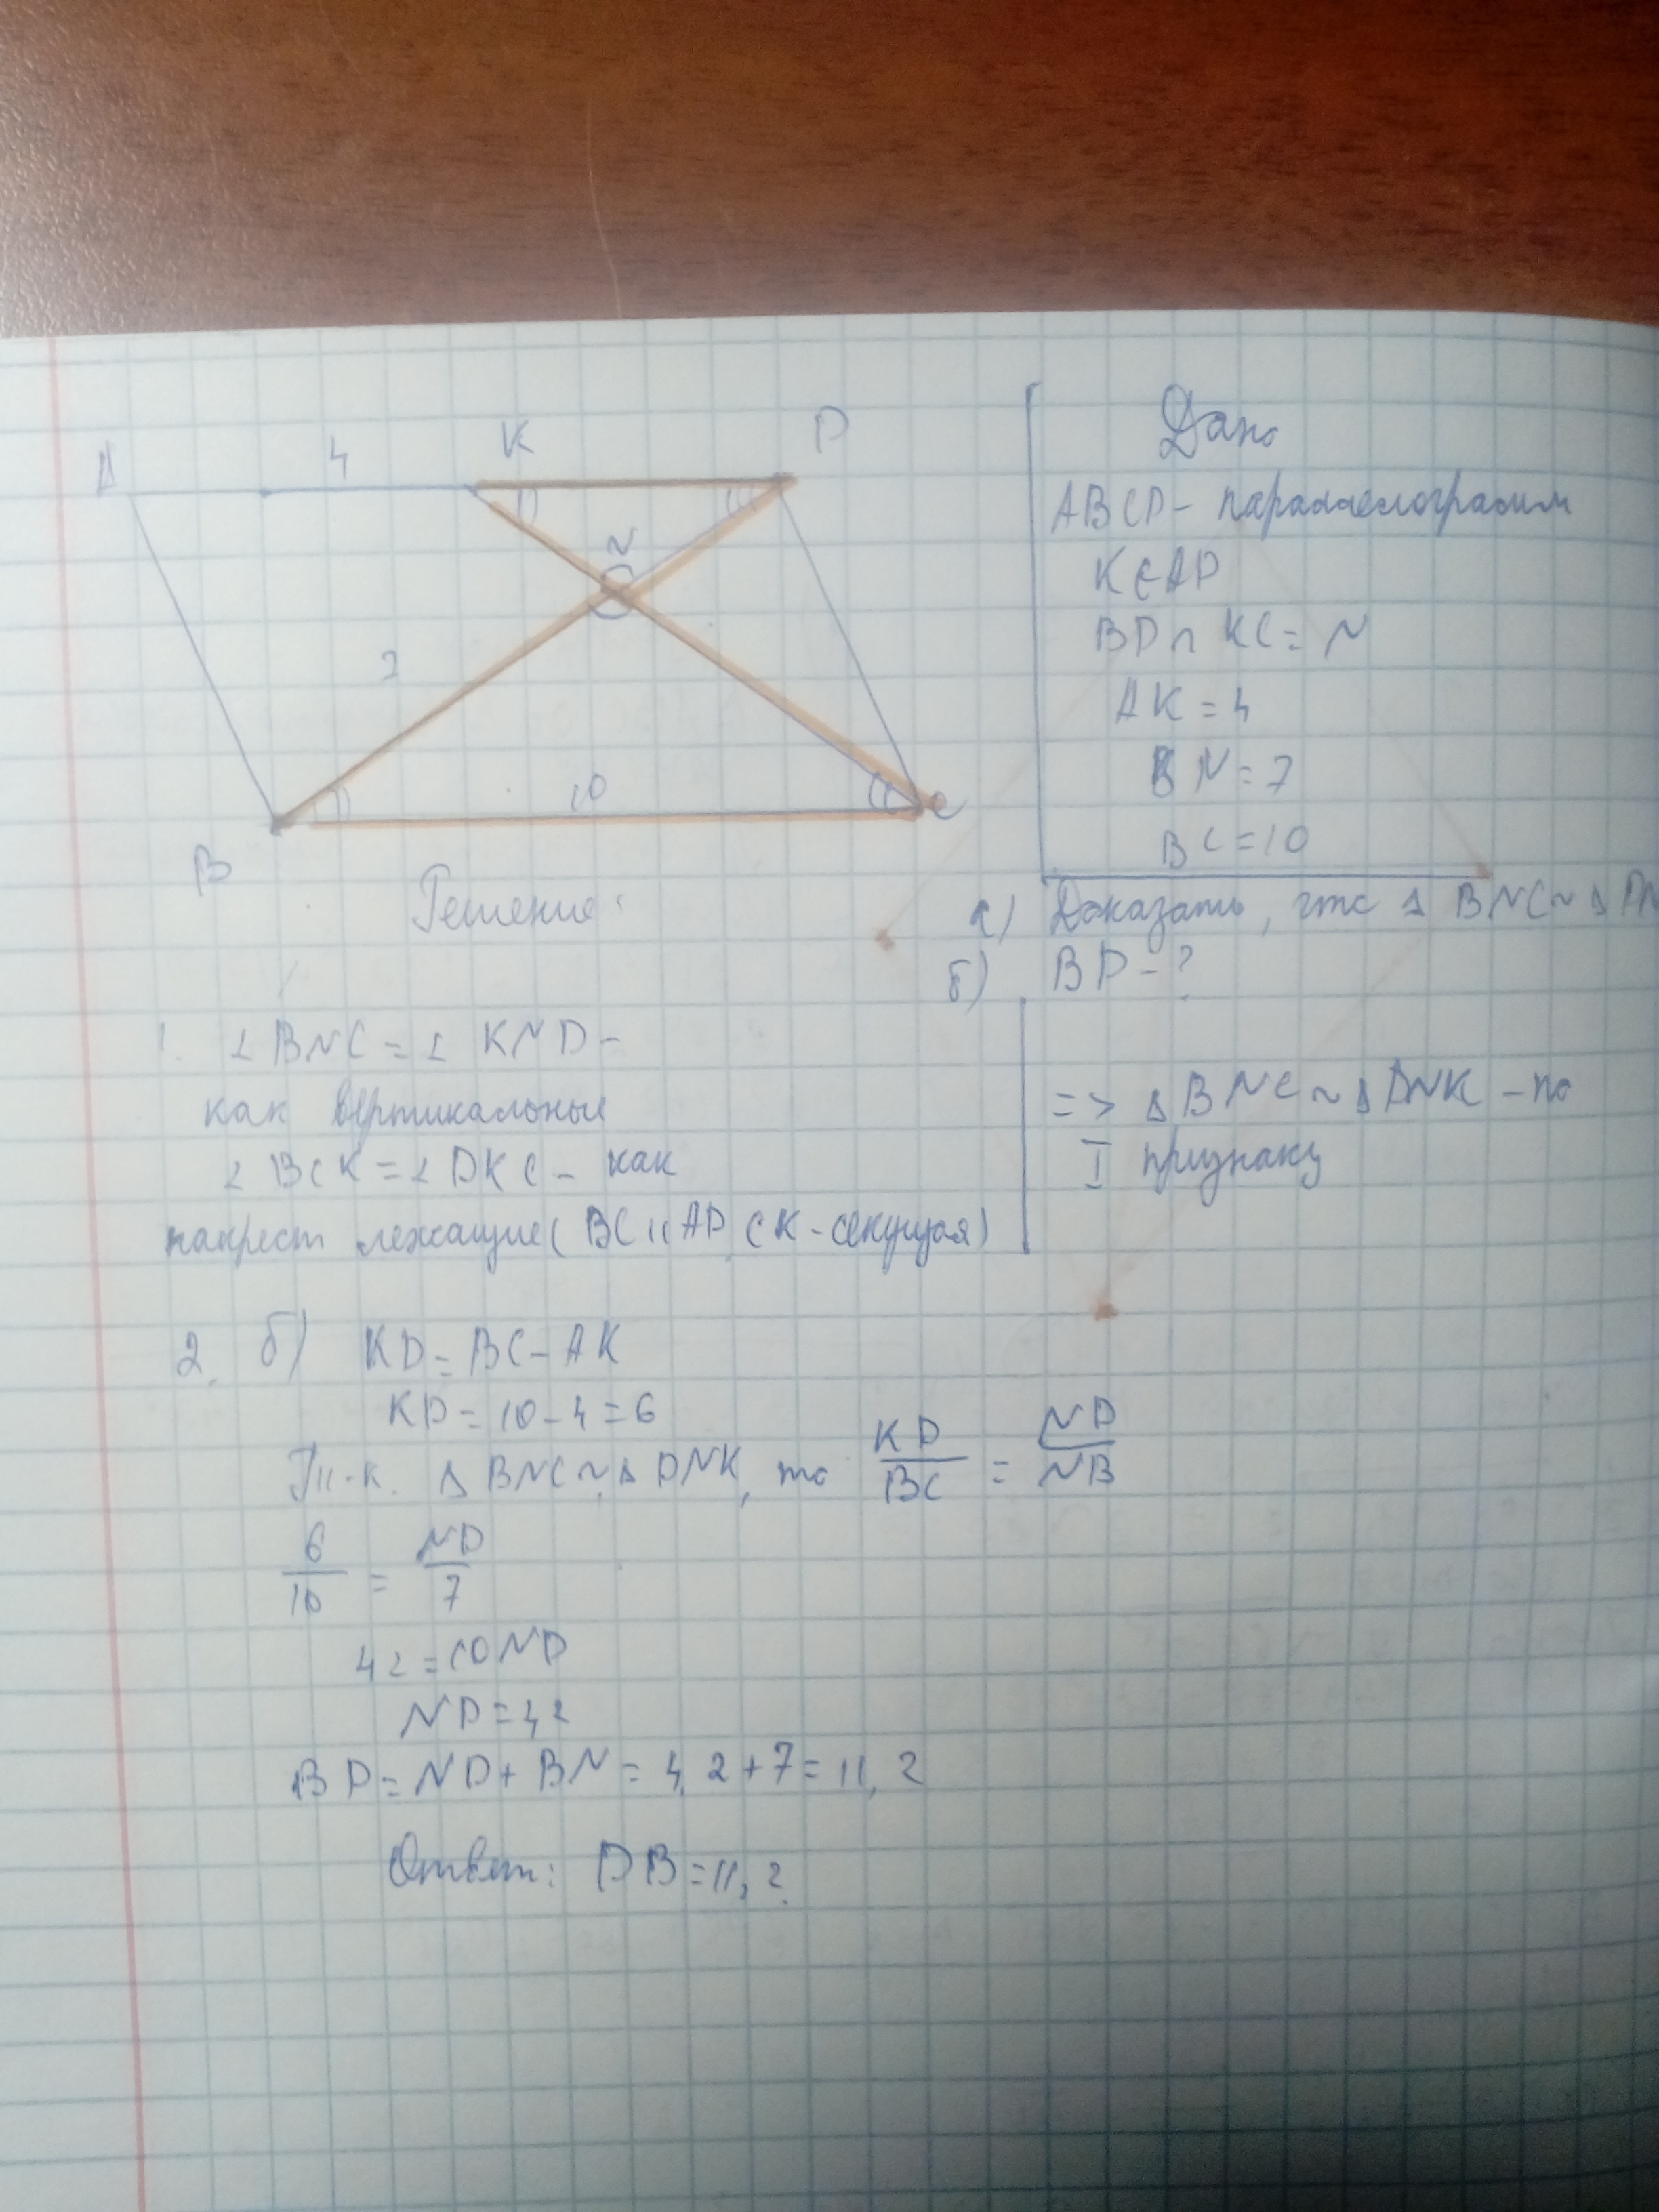 A 4 K D
N
7
10
B C
Дано
ABCD - параллелограмм
K ∈ AD
BD ∩ KC = N
AK = 4
BN = 7
BC = 10
а) Доказать, что Δ BNC ~ Δ DN
б) BD - ?
Решение:
1. ∠ BNC = ∠ KND -
как вертикальные
∠ BCK = ∠ DKC - как
накрест лежащие ( BC || AD, CK - секущая)
=> Δ BNC ~ Δ DNK - по
I признаку
2. б) KD = BC - AK
KD = 10 - 4 = 6
Т.к. Δ BNC ~ Δ DNK, то KD/BC = ND/NB
6/10 = ND/7
42 = 10 ND
ND = 4,2
BD = ND + BN = 4,2 + 7 = 11,2
Ответ: DB = 11,2.